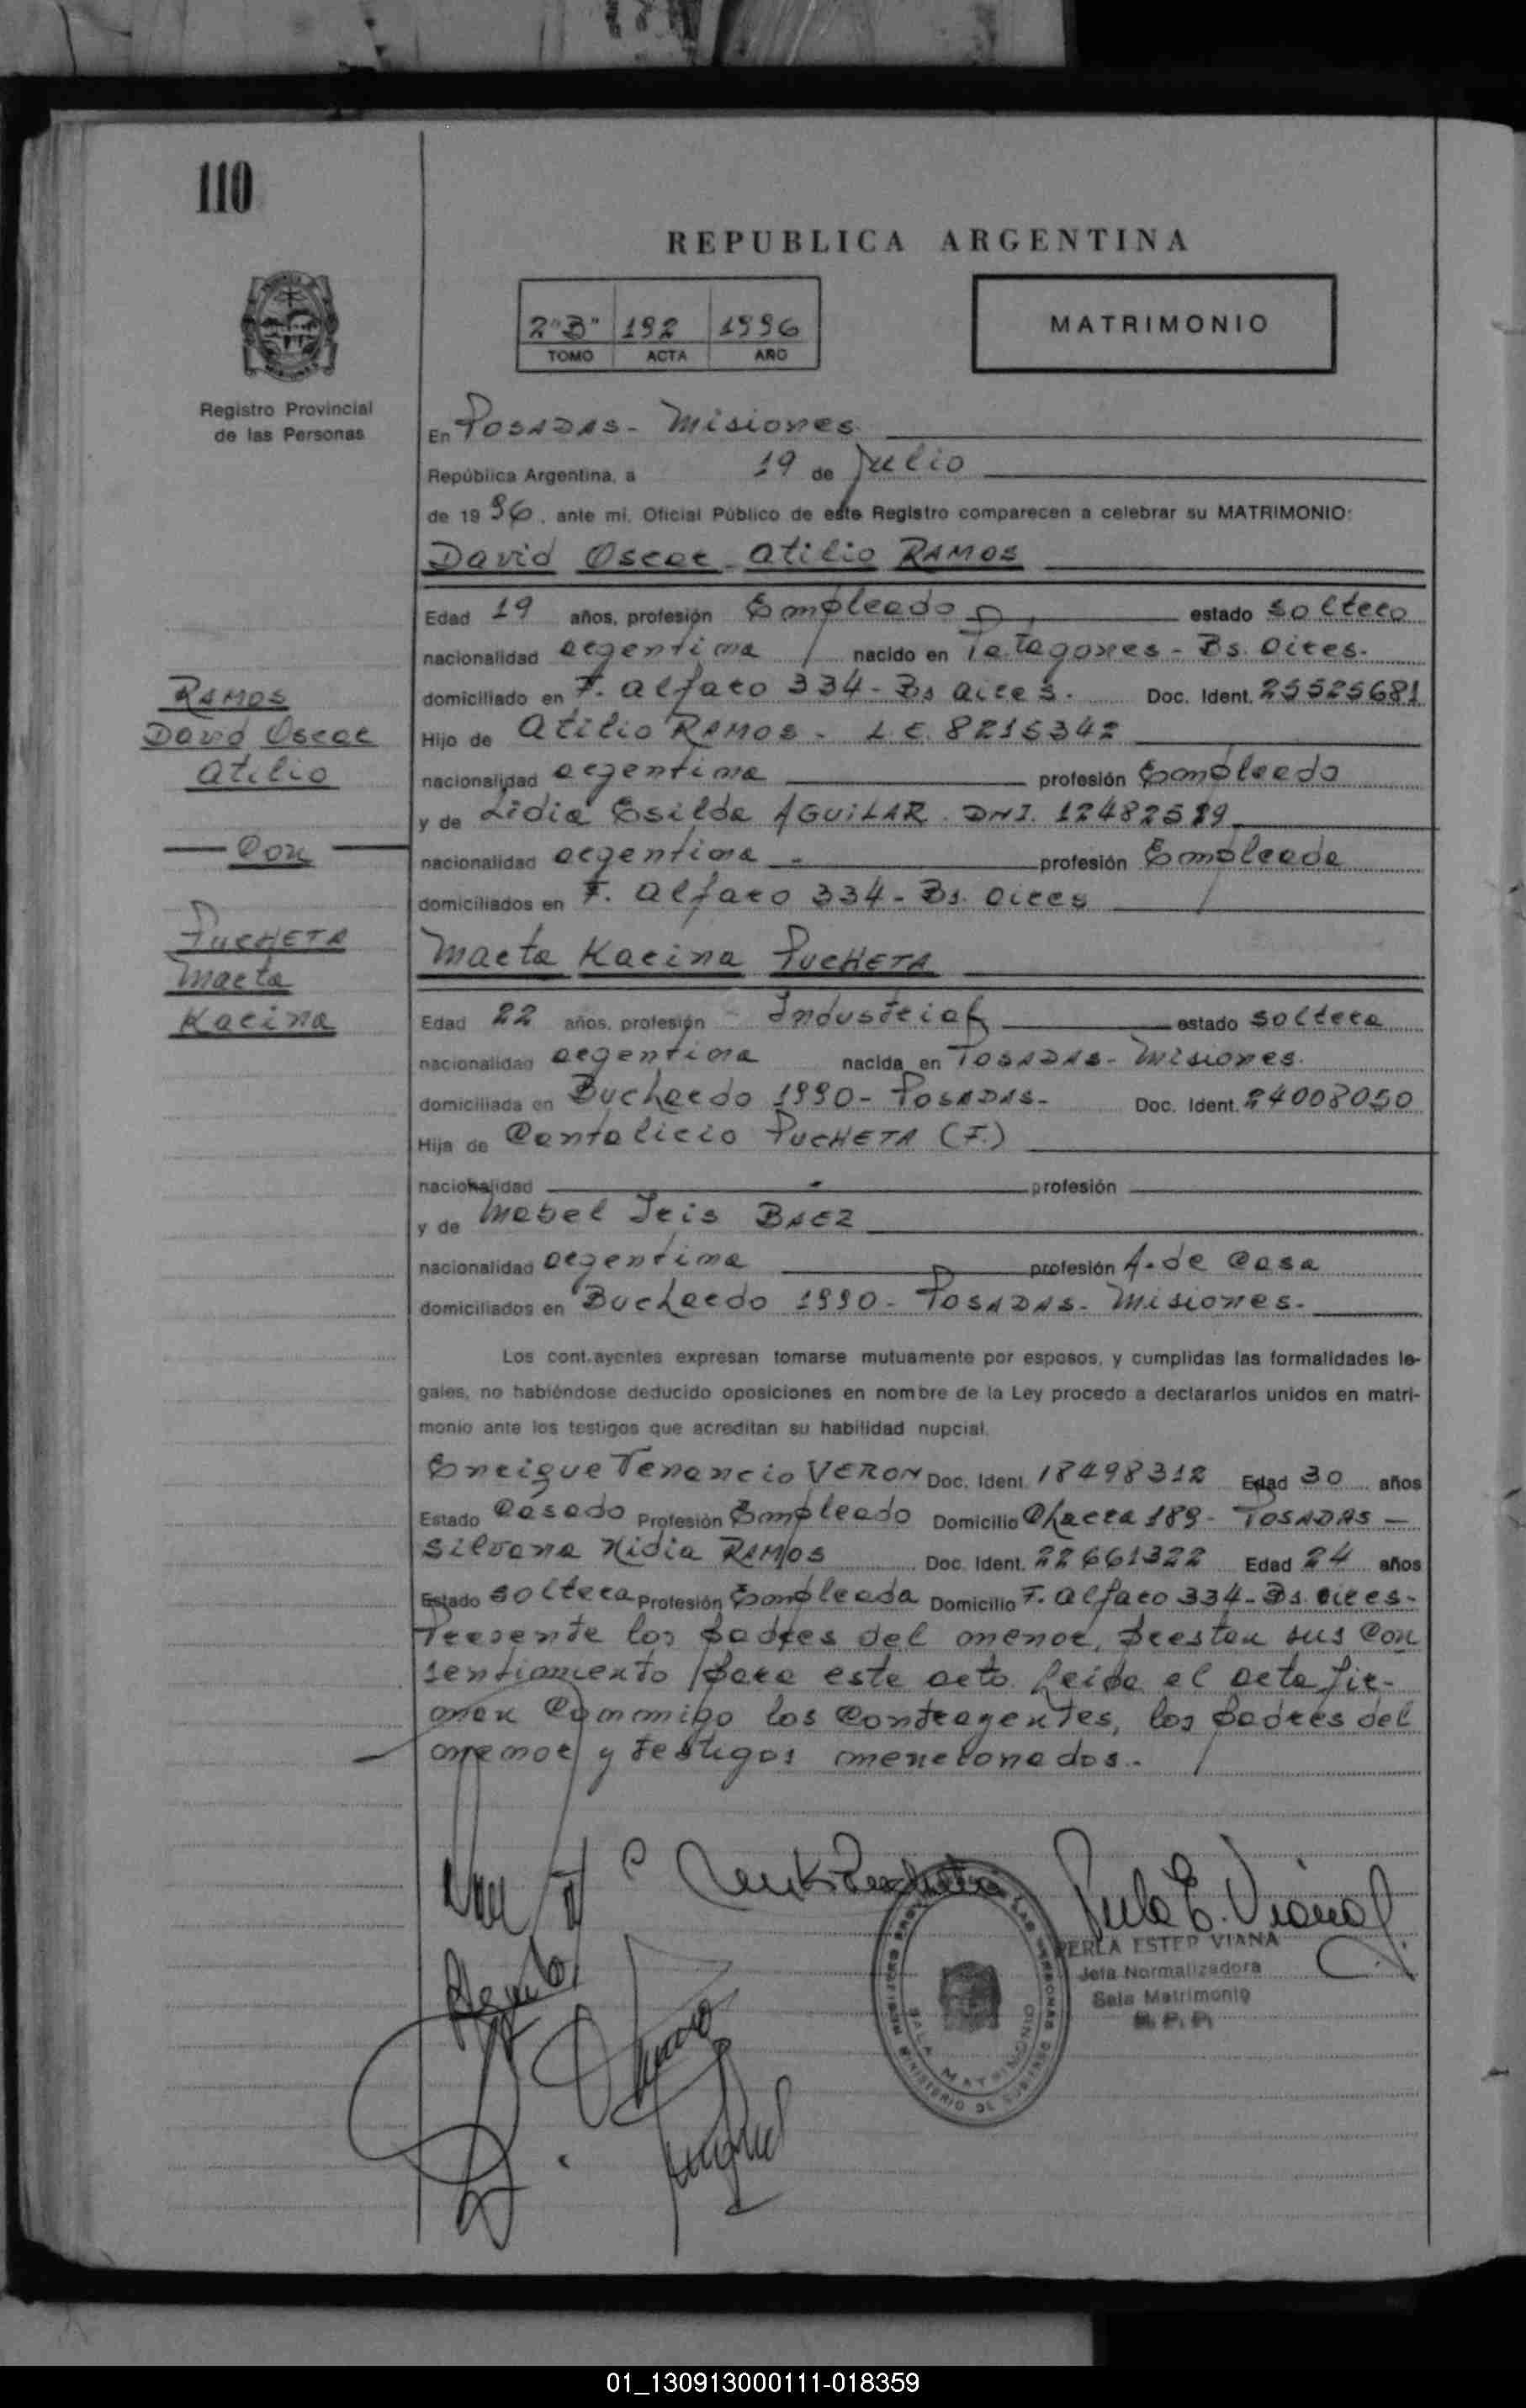 110
REPUBLICA ARGENTINA
2"B" 192 1996
TOMO ACTA AÑO
MATRIMONIO
Registro Provincial
de las Personas
En POSADAS - Misiones
República Argentina, a 19 de Julio
de 1996, ante mi, Oficial Público de este Registro comparecen a celebrar su MATRIMONIO:
David Oscar Atilio RAMOS
Edad 19 años, profesión Empleado estado soltero
nacionalidad argentina nacido en Patagones - Bs. Aires.
domiciliado en F. Alfaro 334 - Bs Aires. Doc. Ident. 25525681
Hijo de Atilio RAMOS - L.E. 8215342
nacionalidad argentina profesión Empleado
y de Lidia Esilda AGUILAR. DNI. 12482589
nacionalidad argentina profesión Empleada
domiciliados en F. Alfaro 334 - Bs. Aires
RAMOS
David Oscar
Atilio
Con
PUCHETA
Marta
Karina
Marta Karina PUCHETA
Edad 22 años, profesión Industrial estado soltera
nacionalidad argentina nacida en POSADAS - Misiones.
domiciliada en Buchardo 1990 - POSADAS - Doc. Ident. 24008050
Hija de Cantalicio PUCHETA (F.)
nacionalidad profesión
y de Mabel Iris BAEZ
nacionalidad argentina profesión A. de Casa
domiciliados en Buchardo 1990 - POSADAS - Misiones.
Los contrayentes expresan tomarse mutuamente por esposos, y cumplidas las formalidades le-
gales, no habiéndose deducido oposiciones en nombre de la Ley procedo a declararlos unidos en matri-
monio ante los testigos que acreditan su habilidad nupcial.
Enrique Venancio VERON Doc. Ident. 18498312 Edad 30 años
Estado Casado Profesión Empleado Domicilio Chacra 189 - POSADAS -
Silvana Nidia RAMOS Doc. Ident. 22661322 Edad 24 años
Estado soltera Profesión Empleada Domicilio F. Alfaro 334 - Bs. Aires -
Presente los padres del menor, prestan sus con
sentimiento para este acto. Leida el acta fir-
man conmigo los contrayentes, los padres del
menor y testigos mencionados.-
PERLA ESTER VIANA
Jefa Normalizadora
Sala Matrimonio
R. P. P.
SALA MATRIMONIO
MINISTERIO DE GOBIERNO
01_130913000111-018359